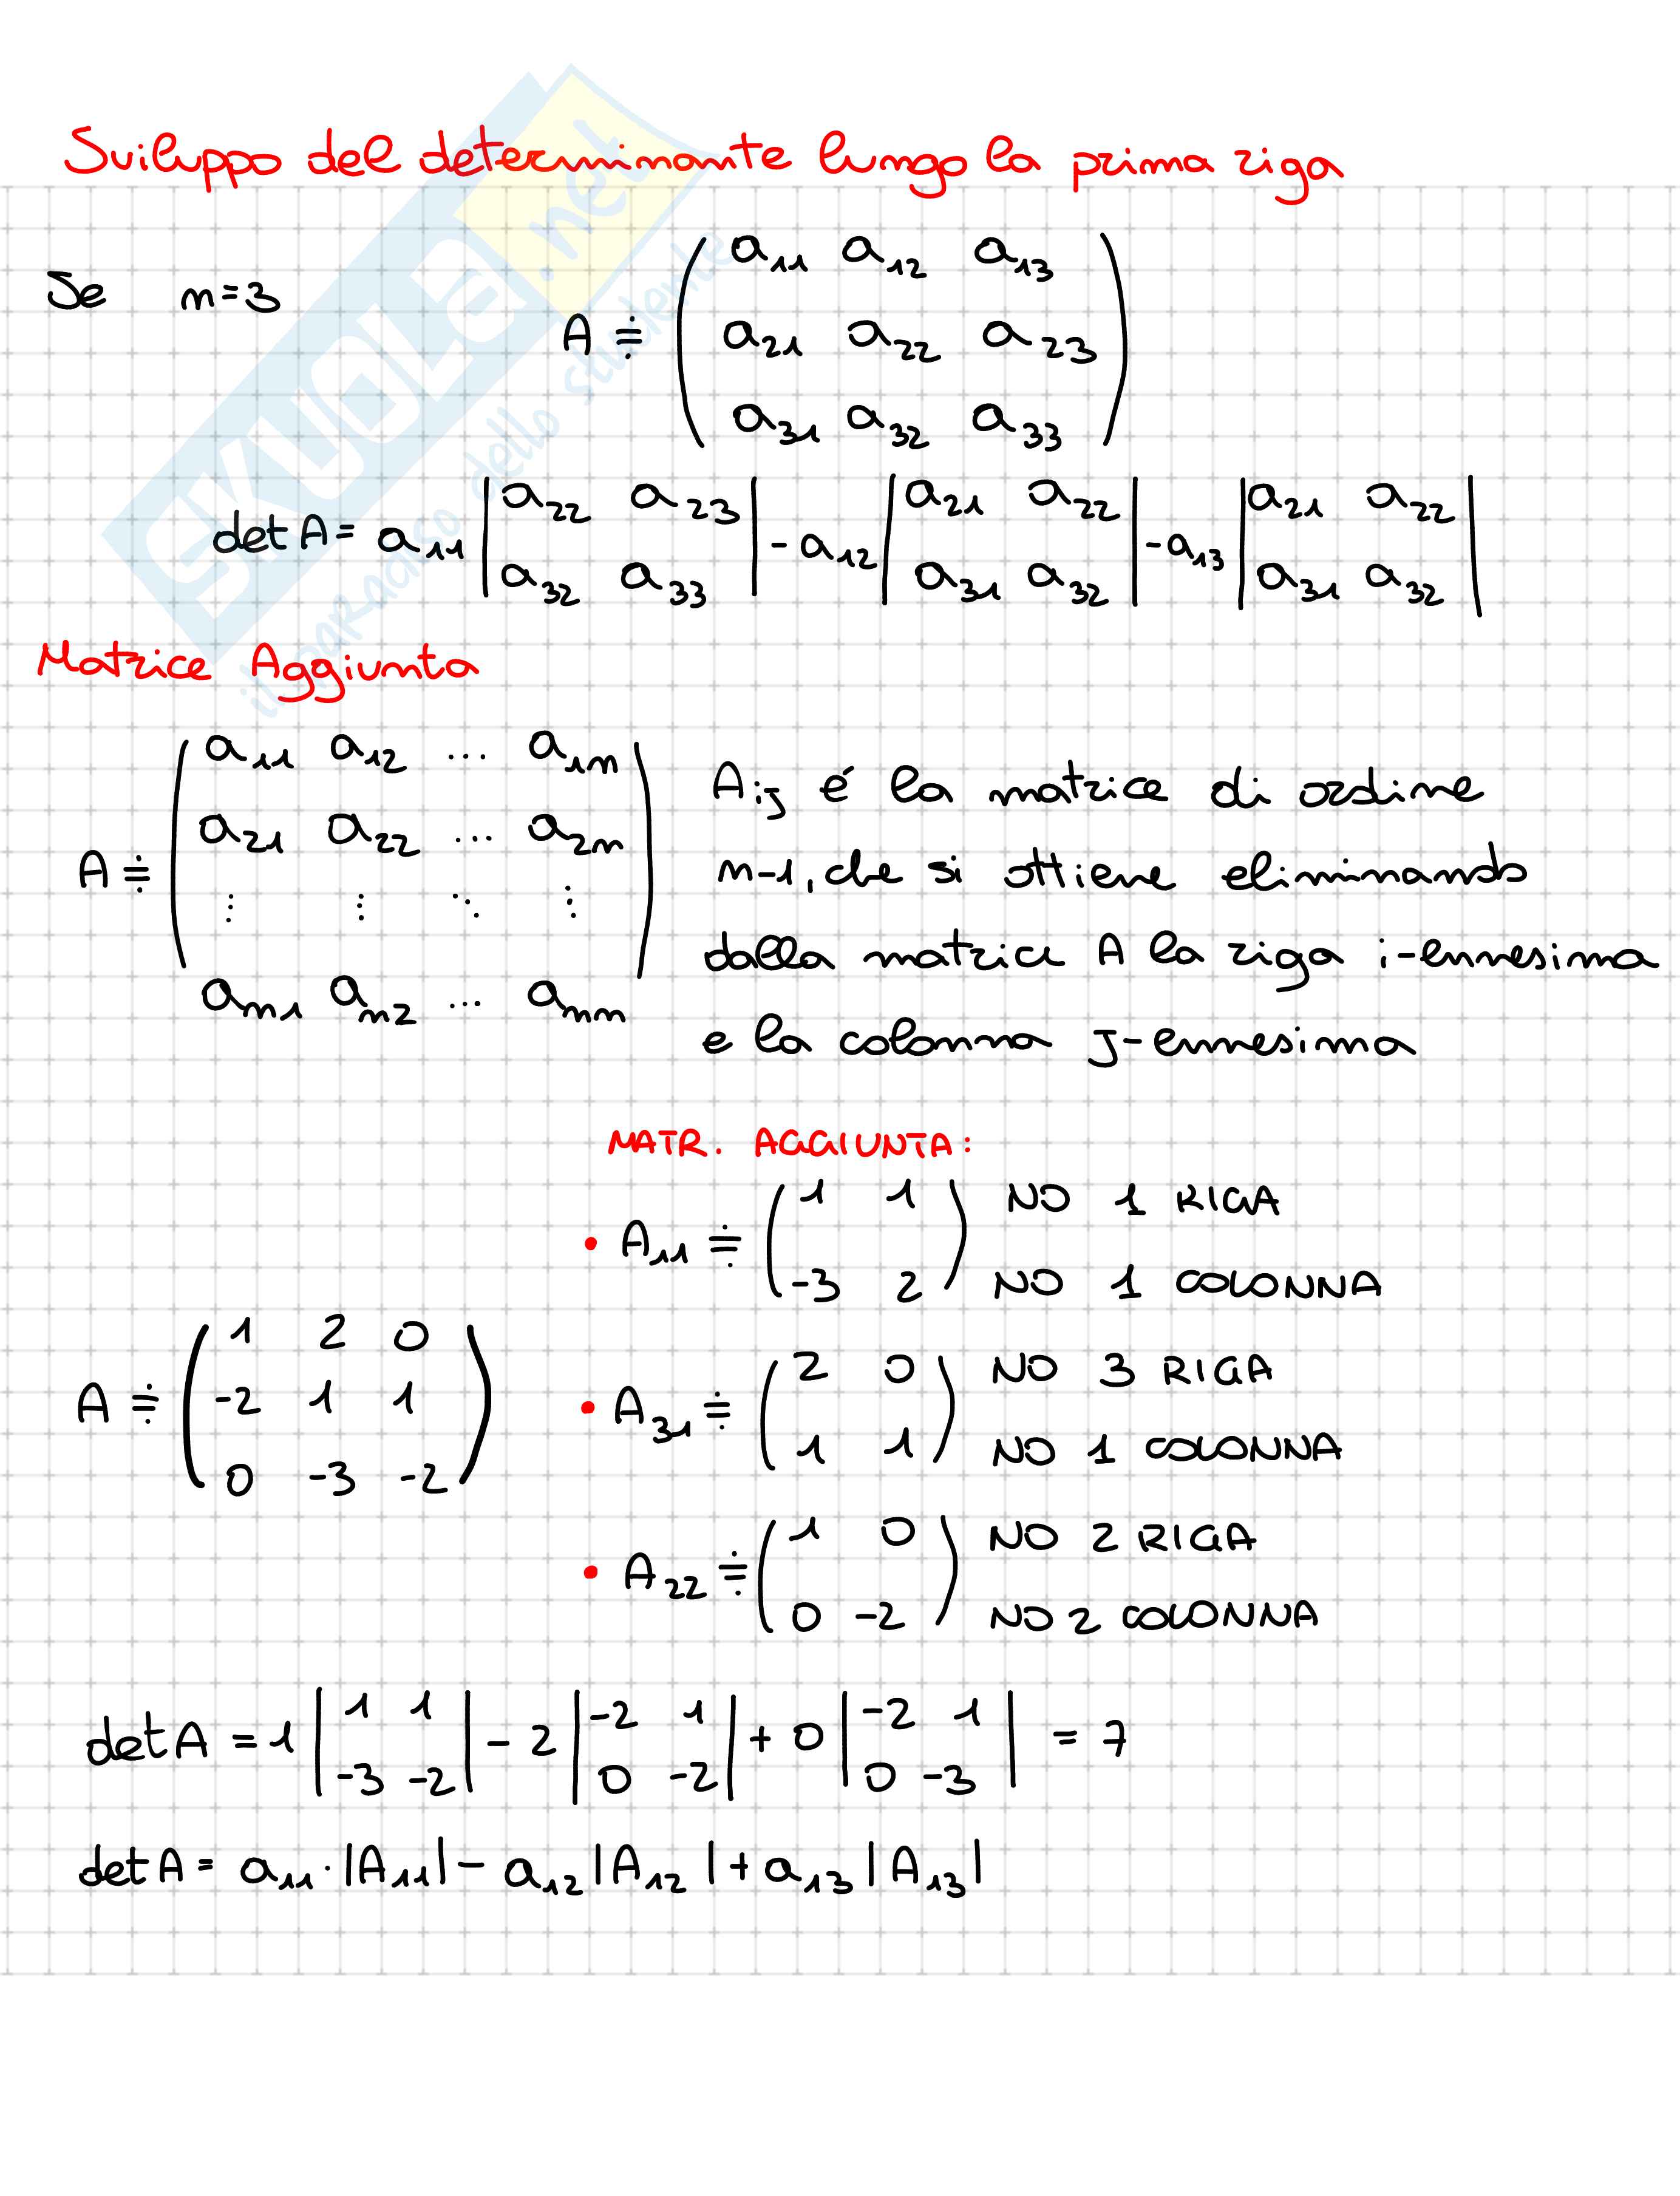 Sviluppo del determinante lungo la prima riga
Se n=3
A ≑ ( a₁₁ a₁₂ a₁₃
a₂₁ a₂₂ a₂₃
a₃₁ a₃₂ a₃₃ )
det A = a₁₁ | a₂₂ a₂₃ | - a₁₂ | a₂₁ a₂₂ | - a₁₃ | a₂₁ a₂₂ |
| a₃₂ a₃₃ | | a₃₁ a₃₂ | | a₃₁ a₃₂ |
Matrice Aggiunta
A ≑ ( a₁₁ a₁₂ ... a₁ₙ
a₂₁ a₂₂ ... a₂ₙ
⋮ ⋮ ⋱ ⋮
aₙ₁ aₙ₂ ... aₙₙ )
Aij é la matrice di ordine
n-1, che si ottiene eliminando
dalla matrice A la riga i-ennesima
e la colonna J-ennesima
MATR. AGGIUNTA:
A ≑ ( 1 2 0
-2 1 1
0 -3 -2 )
• A₁₁ ≑ ( 1 1 NO 1 RIGA
-3 2 ) NO 1 COLONNA
• A₃₁ ≑ ( 2 0 NO 3 RIGA
1 1 ) NO 1 COLONNA
• A₂₂ ≑ ( 1 0 NO 2 RIGA
0 -2 ) NO 2 COLONNA
det A = 1 | 1 1 | - 2 | -2 1 | + 0 | -2 1 | = 7
| -3 -2 | | 0 -2 | | 0 -3 |
det A = a₁₁ · |A₁₁| - a₁₂ |A₁₂| + a₁₃ |A₁₃|
SKUOLA.net
il paradiso dello studente